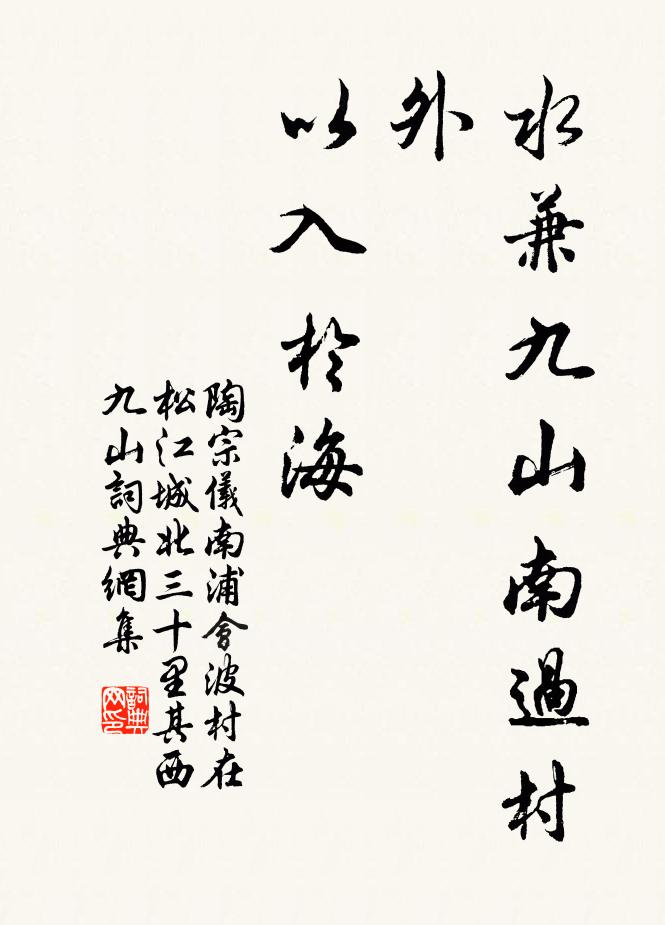 水兼九山南過村
外
以入於海
陶宗儀南浦會波村在
松江城北三十里其西
九山詞典網集
詞典
网印